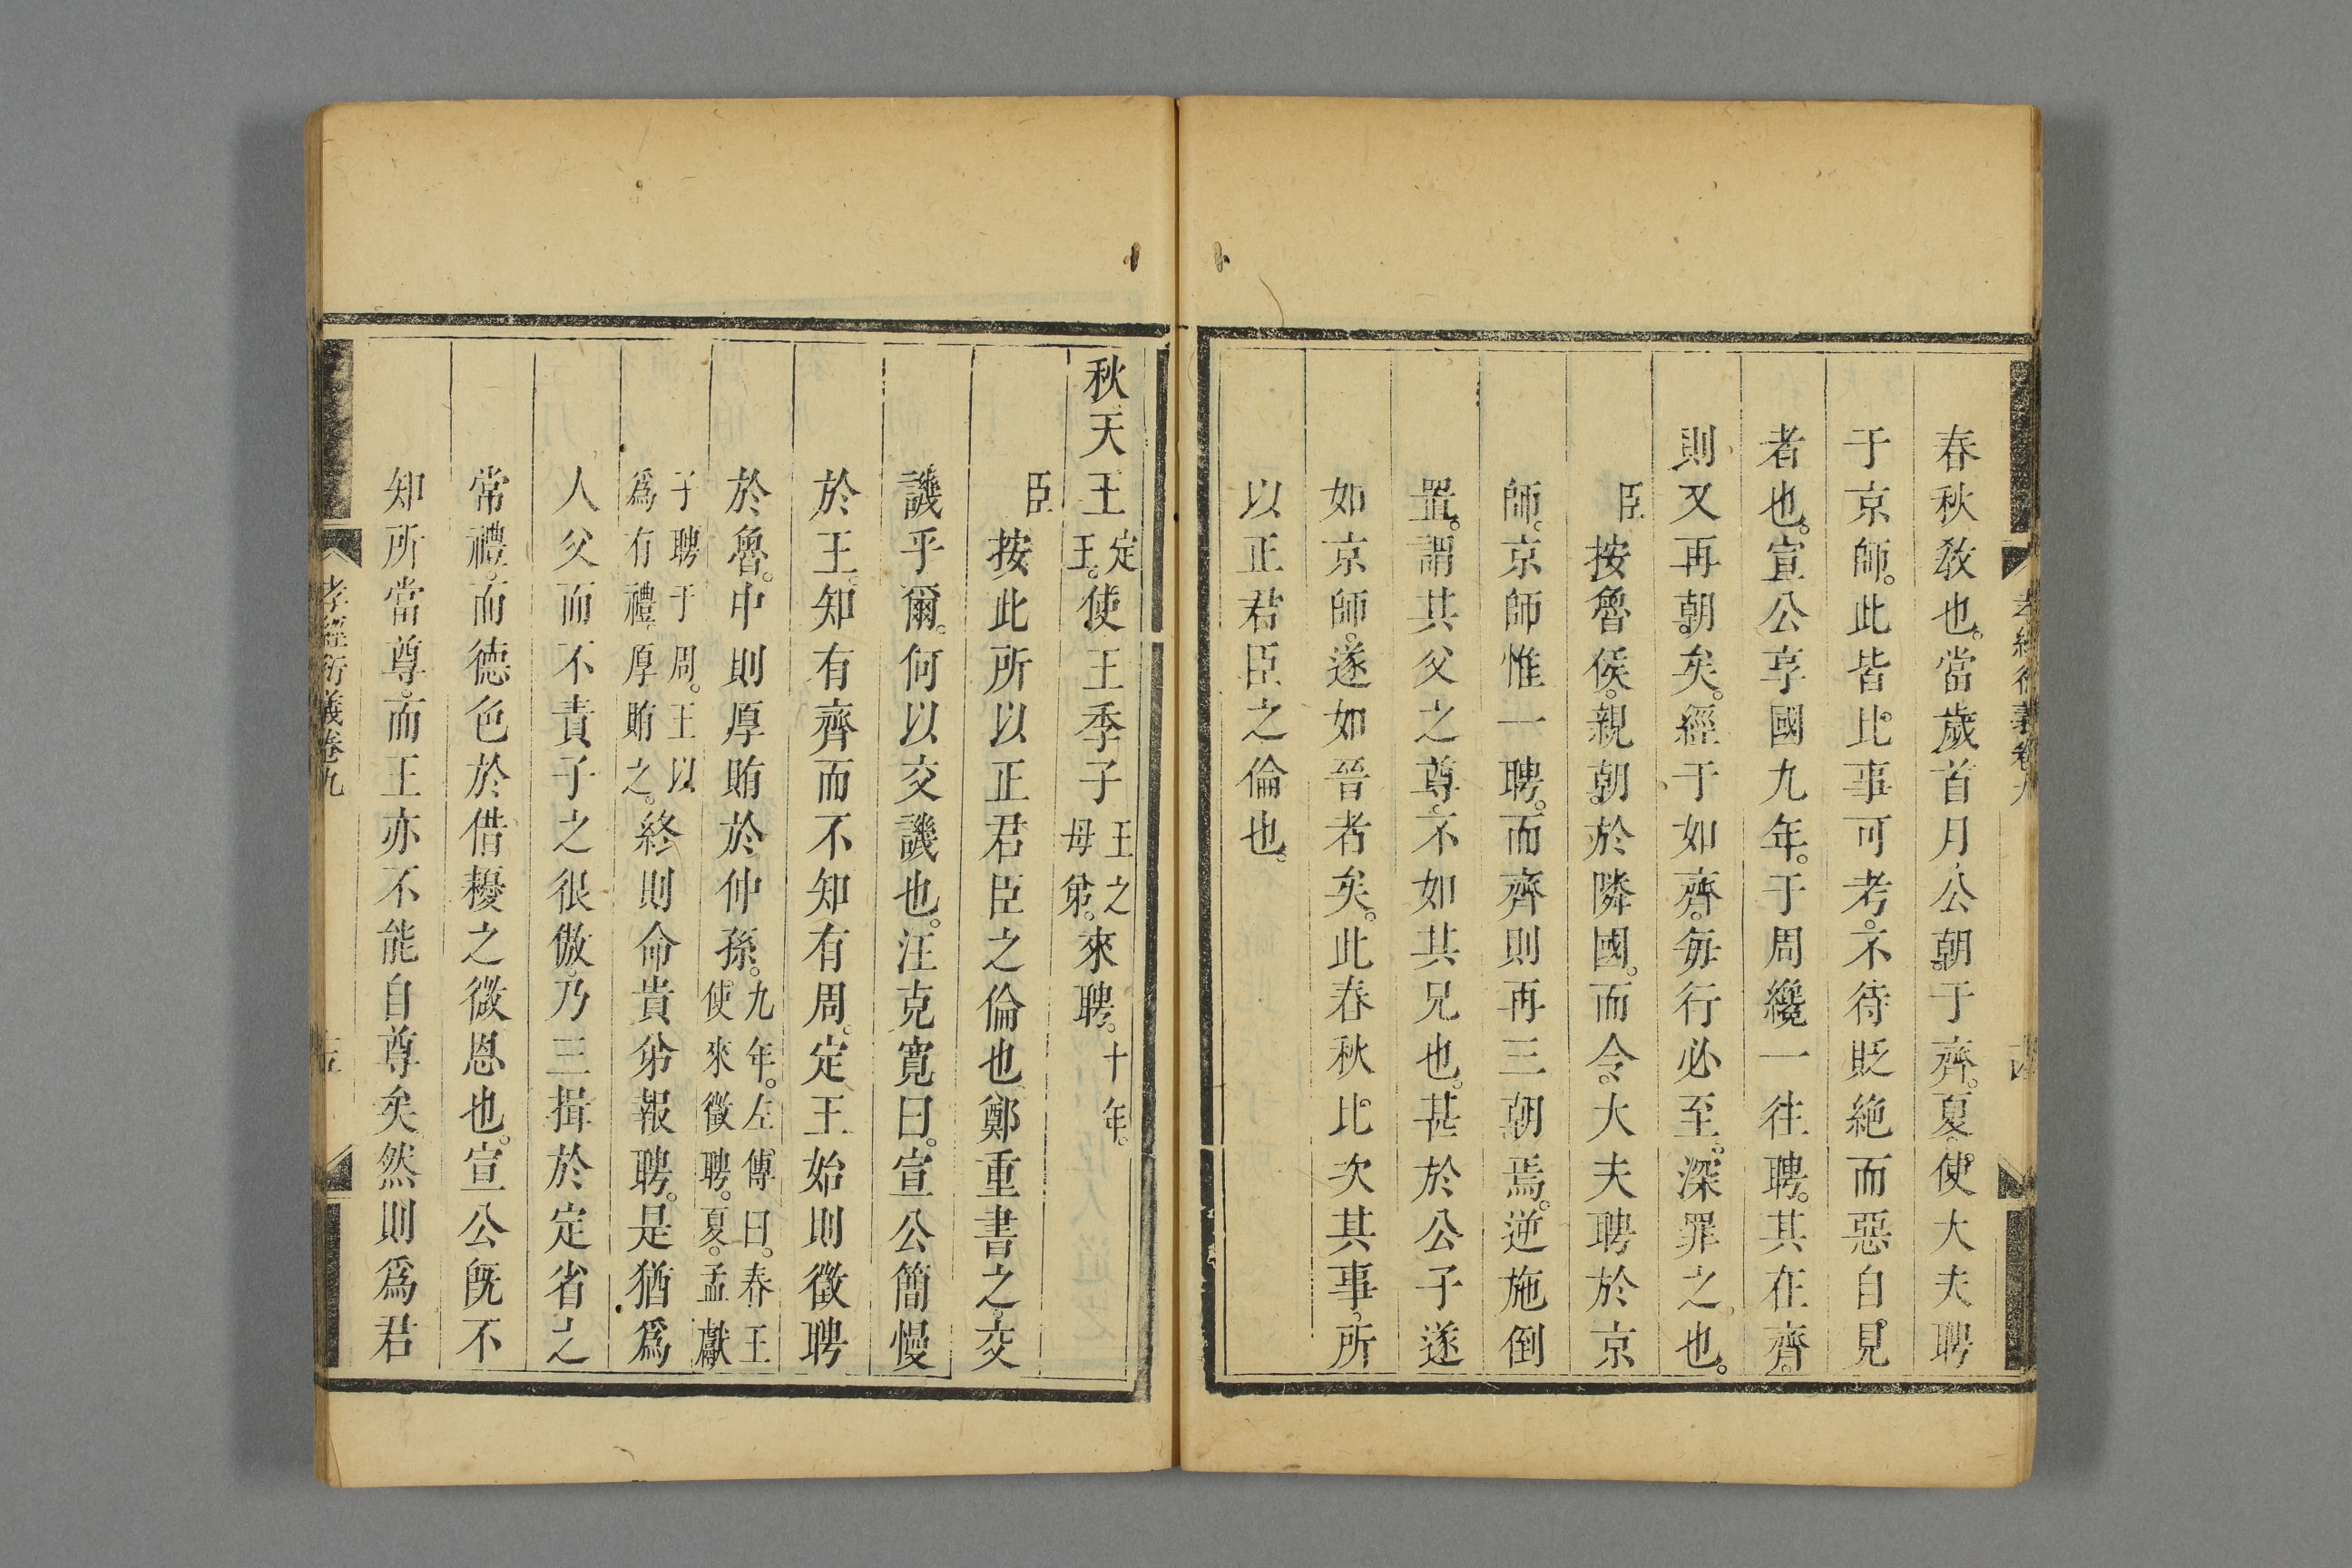 春秋敎也。當歲首月公朝于齊。夏。使大夫聘
于京師。此皆比事可考。不待貶絶而惡自見
者也。宣公享國九年。于周纔一往聘。其在齊。
則又再朝矣。經于如齊。每行必至。深罪之也。
臣按魯侯。親朝於隣國。而令大夫聘於京
師。京師惟一聘。而齊則再三朝焉。逆施倒
置。謂其父之尊。不如其兄也。甚於公子遂
如京師。遂如晉者矣。此春秋比次其事。所
以正君臣之倫也。
秋天王定王。使王季子王之母弟。來聘。十年。
臣按此所以正君臣之倫也鄭重書之。交
譏乎爾。何以交譏也。汪克寬曰。宣公簡慢
於王。知有齊而不知有周。定王始則徵聘
於魯。中則厚賄於仲孫。九年。左傳曰。春王使來徵聘。夏。孟獻
子聘于周。王以爲有禮厚賄之。終則命貴弟報聘。是猶爲
人父而不責子之很傲。乃三揖於定省之
常禮。而德色於借耰之微恩也。宣公旣不
知所當尊。而王亦不能自尊矣然則爲君
孝經衍義卷九